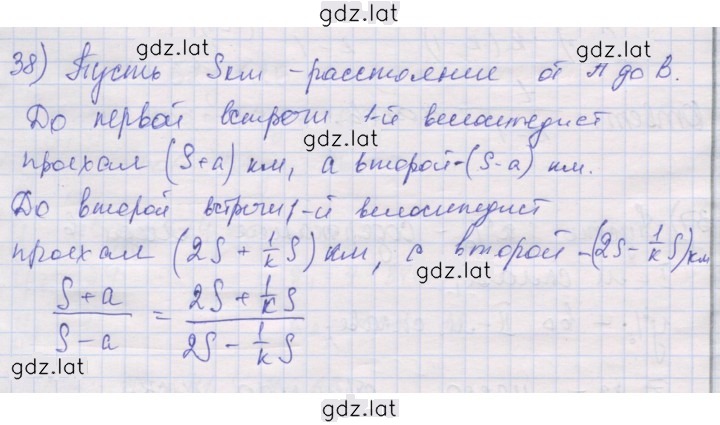 gdz.lat
gdz.lat
38) Пусть S км - расстояние от А до В.
До первой встречи 1-й велосипедист
gdz.lat
проехал (S+a) км, а второй - (S-a) км.
До второй встречи 1-й велосипедист
проехал (2S + 1/k S) км, а второй - (2S - 1/k S) км
gdz.lat
(S+a)/(S-a) = (2S + 1/k S)/(2S - 1/k S)
gdz.lat
gdz.lat
gdz.lat